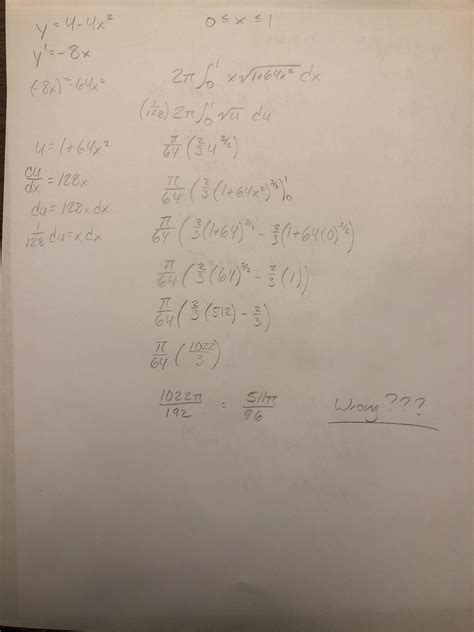 y = 4 - 4x² 0 ≤ x ≤ 1
y' = -8x
(-8x)² = 64x²
2π ∫₀¹ x √(1+64x²) dx
(1/128) 2π ∫₀¹ √u du
u = 1 + 64x²
du/dx = 128x
du = 128x dx
1/128 du = x dx
π/64 (2/3 u^(3/2))
π/64 (2/3 (1+64x²)^(3/2))₀¹
π/64 (2/3 (1+64)^(3/2) - 2/3 (1+64(0))^(3/2))
π/64 (2/3 (64)^(3/2) - 2/3 (1))
π/64 (2/3 (512) - 2/3)
π/64 (1022/3)
1022π/192 = 511π/96
Wrong???